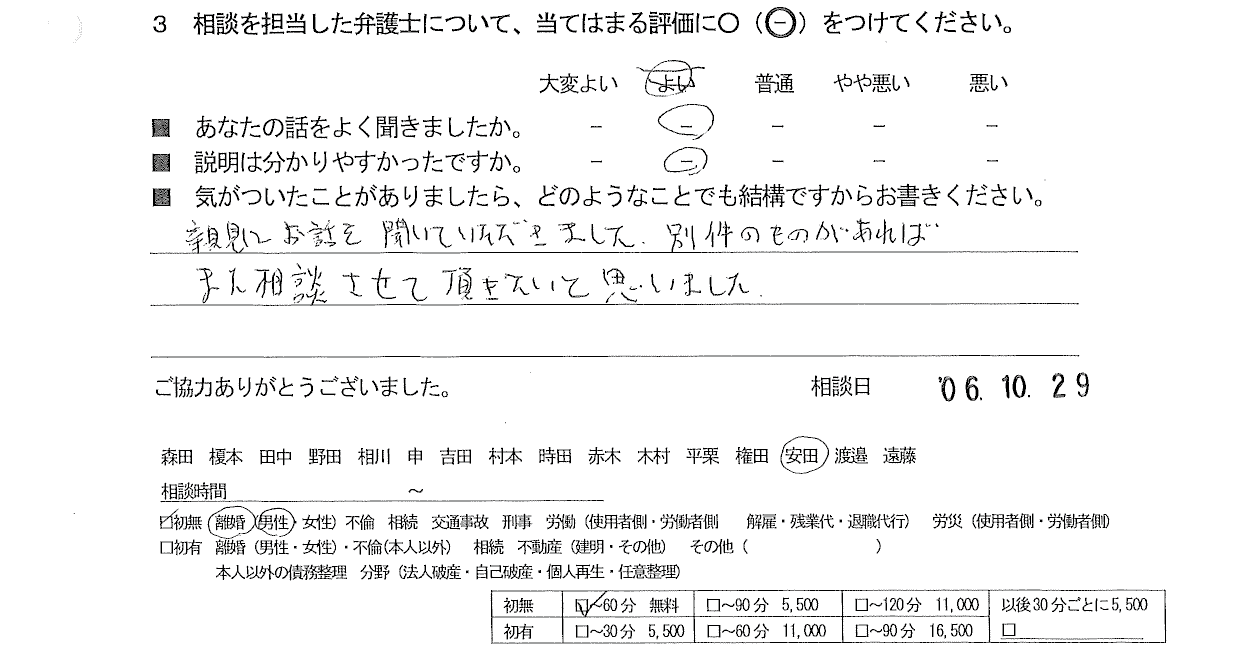 3 相談を担当した弁護士について、当てはまる評価に○（㊀）をつけてください。
大変よい よい 普通 やや悪い 悪い
■ あなたの話をよく聞きましたか。 － － － － －
■ 説明は分かりやすかったですか。 － － － － －
■ 気がついたことがありましたら、どのようなことでも結構ですからお書きください。
親見にお話を聞いていただきました。別件のものがあれば
また相談させて頂きたいと思いました。
ご協力ありがとうございました。 相談日 '06.10.29
森田 榎本 田中 野田 相川 申 吉田 村本 時田 赤木 木村 平栗 権田 安田 渡邉 遠藤
相談時間 ～
☑初無 離婚（男性・女性）不倫 相続 交通事故 刑事 労働（使用者側・労働者側 解雇・残業代・退職代行） 労災（使用者側・労働者側）
□初有 離婚（男性・女性）・不倫(本人以外) 相続 不動産（建明・その他） その他（ ）
本人以外の債務整理 分野（法人破産・自己破産・個人再生・任意整理）
初無 ☑～60分 無料 □～90分 5,500 □～120分 11,000 以後30分ごとに5,500
初有 □～30分 5,500 □～60分 11,000 □～90分 16,500 □